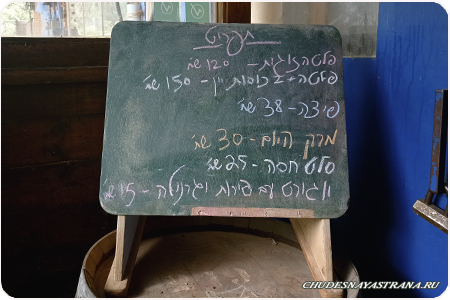 תפריט
פלטה זוגית - 120 שח'
פלטה + 2 כוסות יין - 150 שח'
פיצה - 38 שח'
מרק היום - 30 שח'
סלט חסה - 25 שח'
יוגורט עם פירות וגרנולה - 15 שח'
CHUDESNAYASTRANA.RU